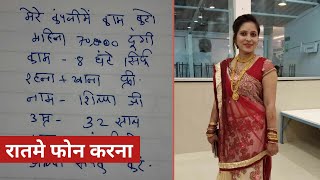 मेरे कंपनीमें काम करो
महिना 70,000 दूंगी
काम - 8 घंटे सिर्फ
रहना + खाना फ्री
नाम - शिल्पा जी
उम्र - 32 साल
रातमे फोन करना